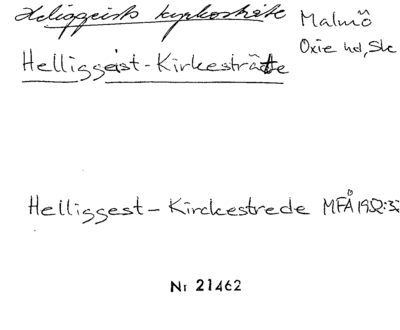 Helliggeists kyrkosträte
Malmö
Oxie hd, Sk
Helliggeist-Kirkesträtte
Helliggest-Kirckestrede MFÅ 1952:32
Nr 21462